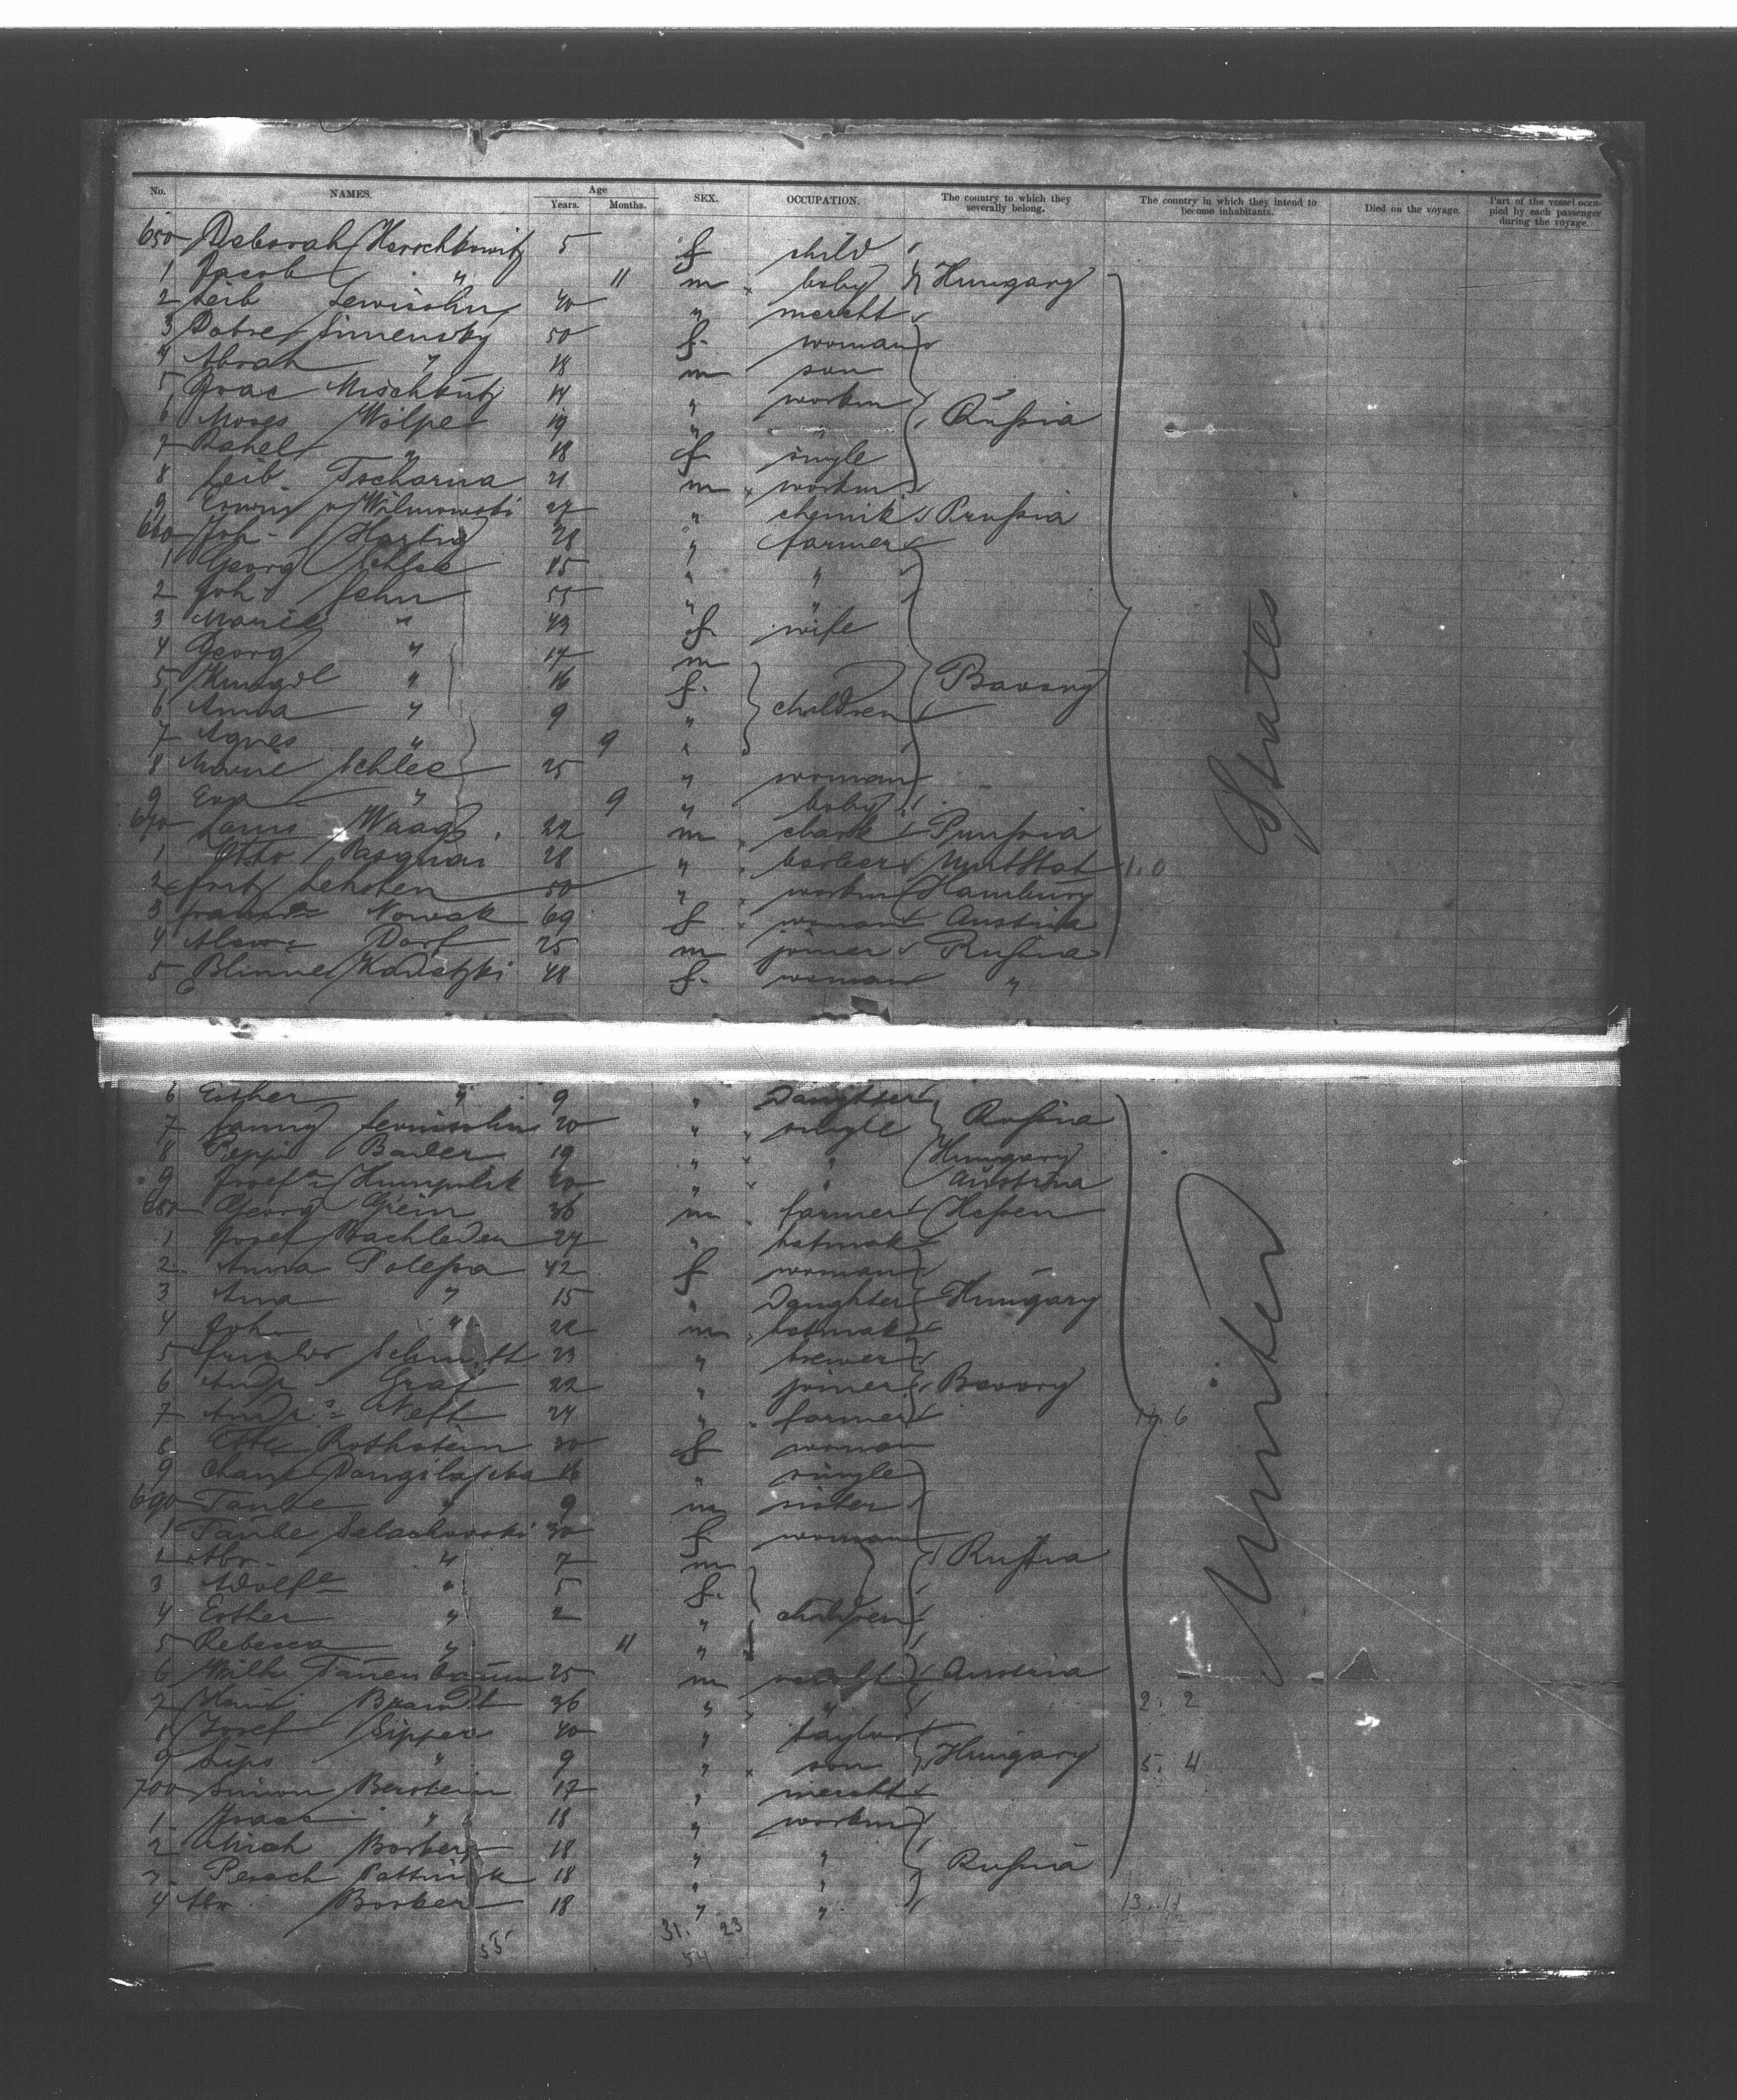 No. NAMES. Age Years. Months. SEX. OCCUPATION. The country to which they severally belong. The country in which they intend to become inhabitants. Died on the voyage. Part of the vessel occupied by each passenger during the voyage.
650 Deborah Herschkowitz 5 f child
1 Jacob " 11 m baby Hungary
2 Leib Lewisohn 40 " mercht
3 50 f. woman
4 Abrah " 18 m son
5 Isac 14 " workm
6 Moses Wolpe 19 " " Rußia
7 Rahel " 18 f single
8 Leib Tscharna 21 m workm
9 Erwin v Wilmowski 27 " chemik Prußia
660 Joh. Hartig 28 " farmer
1 Georg Schlee 15 " "
2 Joh. 55 " "
3 Marie " 43 f. wife
4 Georg " 17 m
5 " 16 f. Bavary
6 Anna " 9 " children
7 Agnes " 9 "
8 Marie Schlee 25 " woman
9 Eva " 9 " baby
670 Waag 22 m Prußia
1 Otto 28 " barber 1.0
2 Fritz Lehsten 50 " workm Hamburg
3 Nowak 69 f woman Austria
4 Dorf 25 m joiner Rußia
5 Blinne Kadetzki 48 f. woman "
States
6 Esther " 9 " Daughter
7 Fanny Lewisohn 20 " single Rußia
8 Peppi Bader 19 " " Hungary
9 Josefa 20 " " Austria
680 Georg Grein 36 m farmer Heßen
1 Josef Bachleden 27 "
2 Anna Poleßa 42 f woman
3 Ana " 15 " Daughter Hungary
4 Joh. " 22 m
5 Schmidt 23 " brewer
6 Andr. Graf 22 " joiner Bavary
7 Andrs Neft 24 " farmer 14. 6
8 Rothstein 30 f woman
9 16 " single
690 Taube " 9 m sister
1 Taube Selachowski 30 f woman
2 Abr. " 7 m Rußia
3 Adolfe " 5 f.
4 Esther " 2 " children
5 Rebecca " 11 "
6 Wilh Tanenbaum 25 m Austria
7 Brandt 36 " " 2. 2
8 Josef Sipper 40 " taylor
9 Lips " 9 " son Hungary 5. 4
700 Simon Berstein 17 " mercht
1 Isaac " 18 " workm
2 18 " "
3 18 " " Rußia
4 Abr. Borber 18 " " 13. 11
United
31. 23
55 54